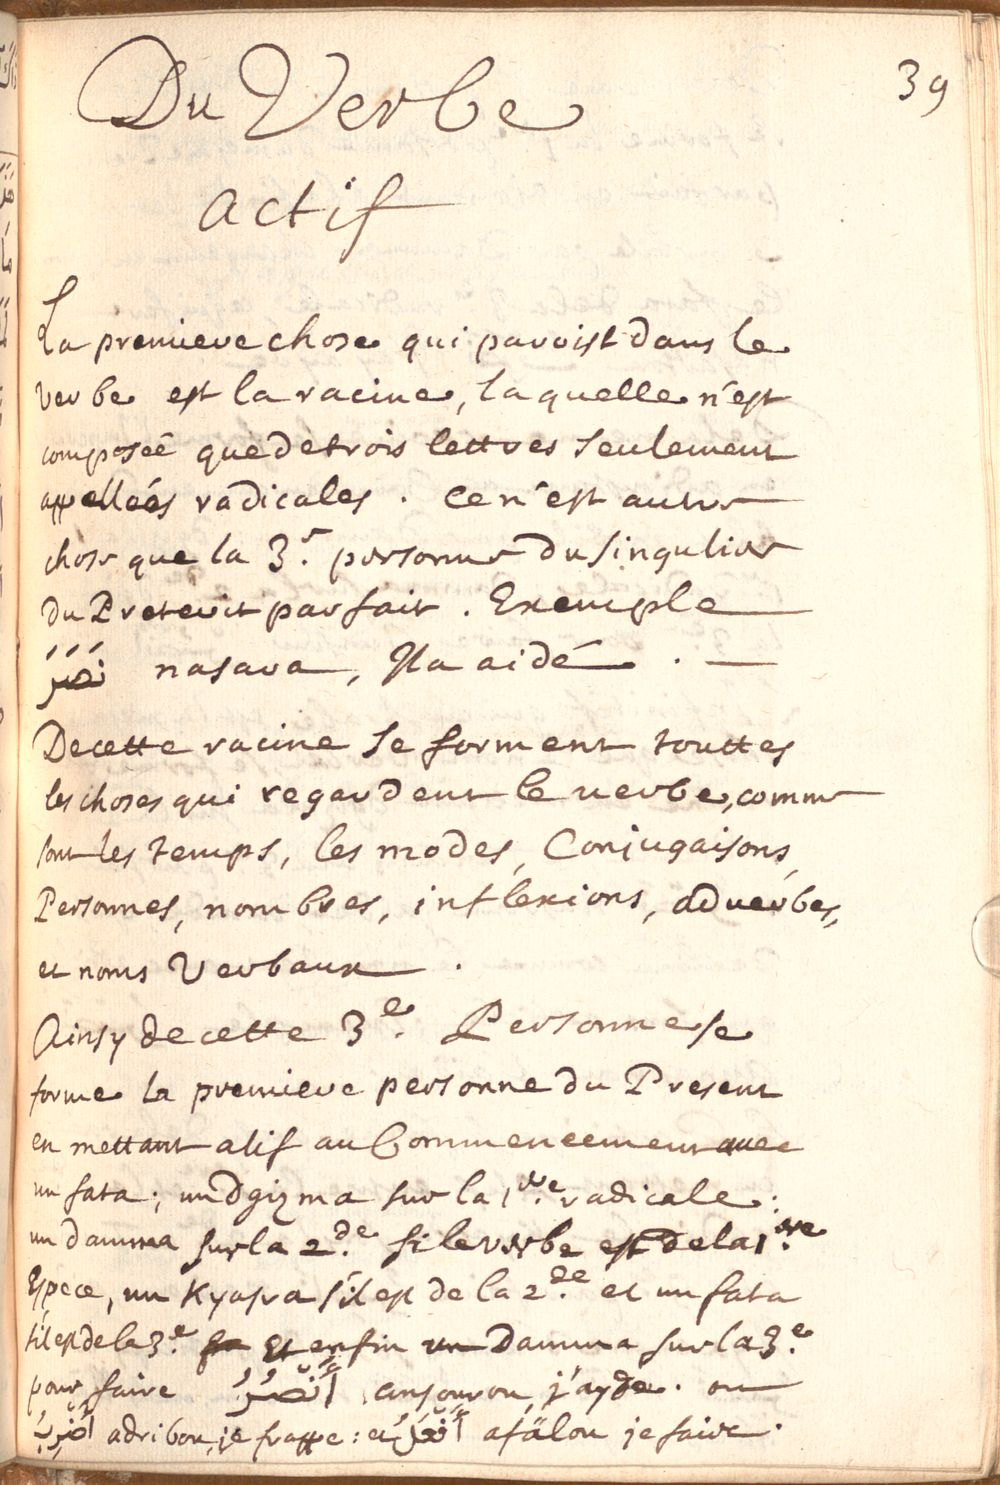 39
Du Verbe
actif
La premiere chose qui paroist dans le
Verbe est la racine, laquelle n'est
composeé que de trois lettres seulement
appelleés radicales. Ce n'est autre
chose que la 3.e personne du singulier
du Preterit parfait. Exemple
نَصَرَ nasara, Il a aidé.
De cette racine se forment touttes
les choses qui regardent le verbe, comme
sont les temps, les modes, Conjugaisons,
Personnes, nombres, inflexions, adverbes,
et noms Verbaux.
Ainsy de cette 3.e Personne se
forme la premiere personne du Present
en mettant alif au Commencement avec
un fata; un dgizma sur la 1.re radicale:
un damma sur la 2.de si le verbe est de la 1.re
Espece, un Kyasra s'il est de la 2.de et un fata
s'il est de la 3.e Et enfin un damma sur la 3.e
pour faire أَنْصُرُ ansourou, j'ayde. ou
أَضْرِبُ adribou, je frappe: et أَفْعَلُ afälou je faire.